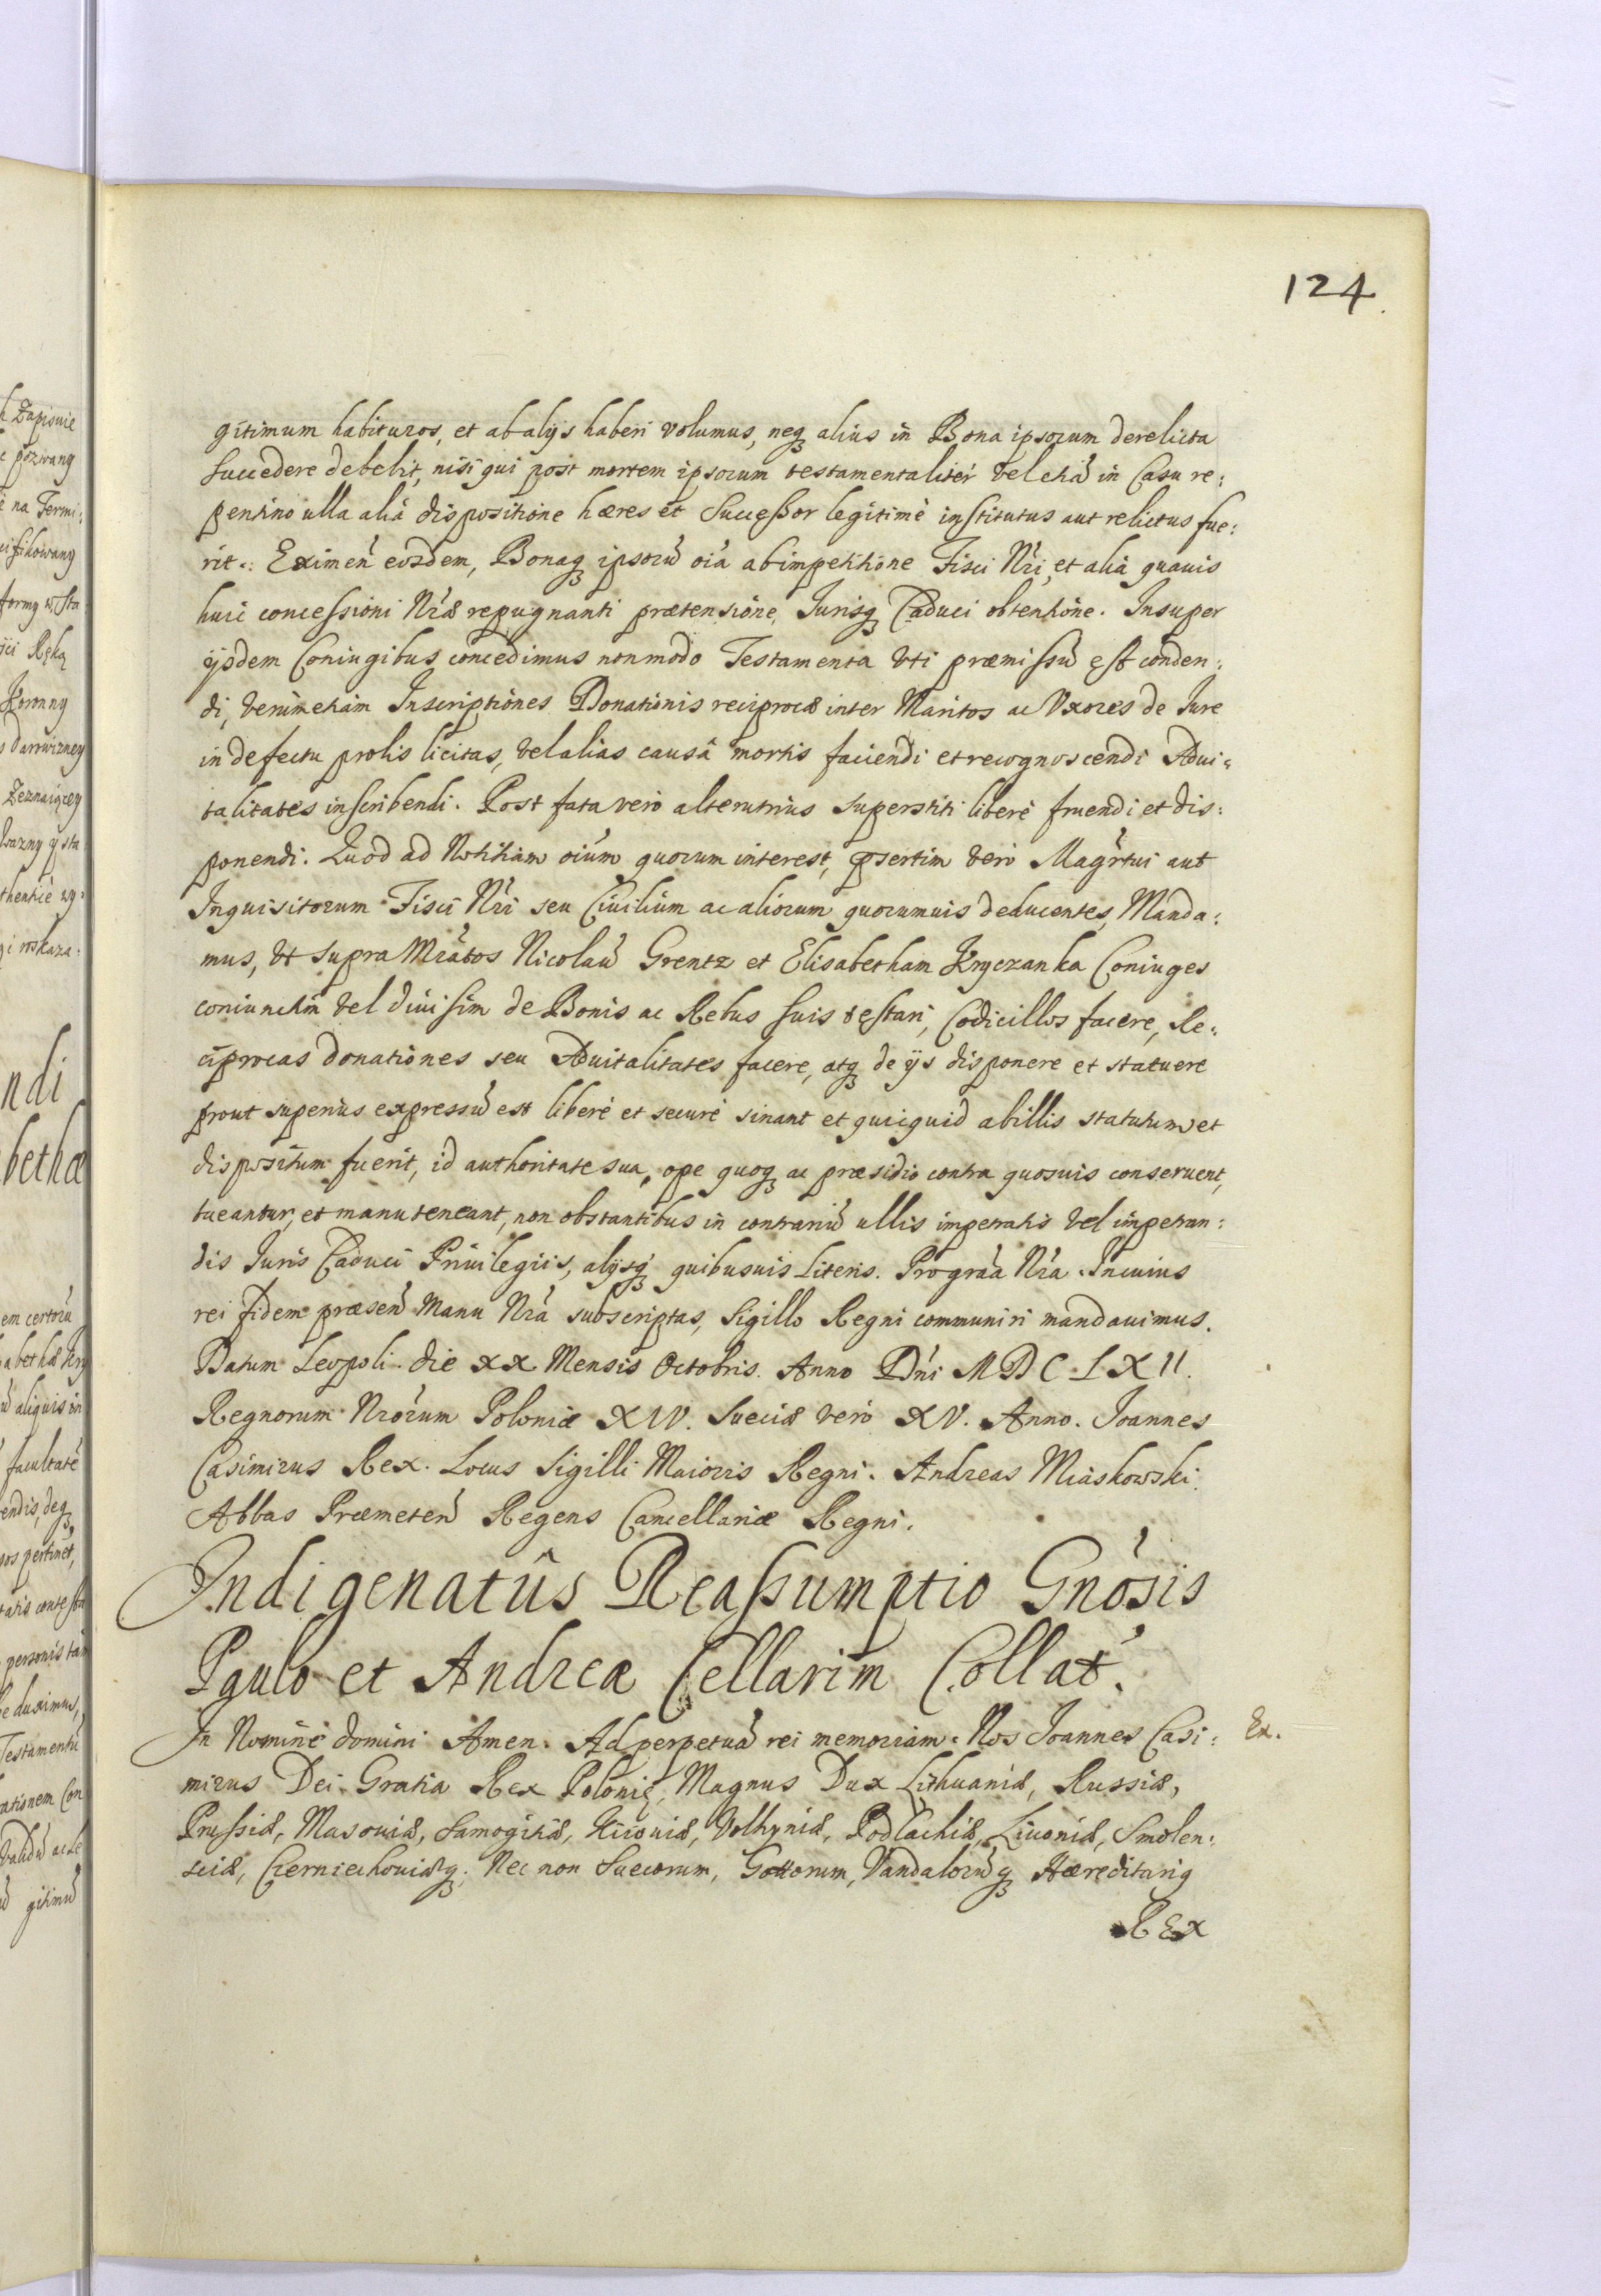 124
gitimum habituros, et ab alijs haberi volumus, neqꝫ alius in Bona ipsorum derelicta
succedere debebit, nisi qui post mortem ipsorum testamentaliter vel etiã in Casu re:
pentino ulla aliâ dispositione hæres et Successor legitimè institutus aut relictus fue:
rit. Eximeñ eosdem, Bonaqꝫ ipsorũ oĩa ab impetitione Fisci Nr̃i, et aliâ quauis
huic concessioni Nr̃æ repugnanti prætensione, Jurisqꝫ Caduci obtentione. Insuper
ijsdem Coniugibus concedimus non modo Testamenta vti præmissũ est conden:
di, verùm etiàm Inscriptiones Donationis reciprocæ inter Maritos ac Vxores de Jure
in defectu prolis licitas, vel alias causâ mortis faciendi et recognoscendi Advi:
talitates inscribendi. Post fata verò alterutrius superstiti liberè fruendi et dis:
ponendi. Quod ad Notitiam oĩum quorum interest, p̃sertim verò Magr̃tui aut
Inquisitorum Fisci Nr̃i seu Ciuilium ac aliorum quorumuis deducentes, Manda:
mus, vt supra Mr̃atos Nicolaũ Grentz et Elisabetham Kryczanka Coniuges
coniunctim vel diuisim de Bonis ac Rebus suis testari, Codicillos facere, Re:
ciprocas donationes seu Aduitalitates facere, atqꝫ de ijs disponere et statuere
prout superiùs expressũ est liberè et securè sinant et quicquid ab illis statutum et
dispositum fuerit, id authoritate sua, ope quoqꝫ ac præsidio contra quosuis conseruent,
tueantur, et manuteneant, non obstantibus in contrariũ ullis impetratis vel impetran:
dis Juris Caduci Priuilegiis, alijsqꝫ quibusuis Literis. Pro gr̃aa Nr̃a. In cuius
rei fidem præseñ Manu Nr̃a subscriptas, Sigillo Regni communiri mandauimus.
Datum Leopoli die XX Mensis Octobris. Anno Dñi MDCLXII.
Regnorum Nr̃orum Poloniæ XIV. Sueciæ verò XV. Anno. Joannes
Casimirus Rex. Locus Sigilli Maioris Regni. Andreas Miaskowski
Abbas Præmeteñ Regens Cancellariæ Regni.
Indigenatûs Reassumptio Gñosis
Paulo et Andreæ Cellarim Collat.
In Nomine domini Amen. Ad perpetuã rei memoriam. Nos Joannes Casi: Ex.
mirus Dei Gratia Rex Polonię, Magnus Dux Lithuaniæ, Russiæ,
Prussiæ, Masouiæ, Samogitiæ, Kiiouiæ, Volhyniæ, Podlachiæ, Liuoniæ, Smolen:
sciæ, Czerniechouiæqꝫ. Nec non Suecorum, Gottorum, Vandalorũqꝫ Hæreditariq
REx